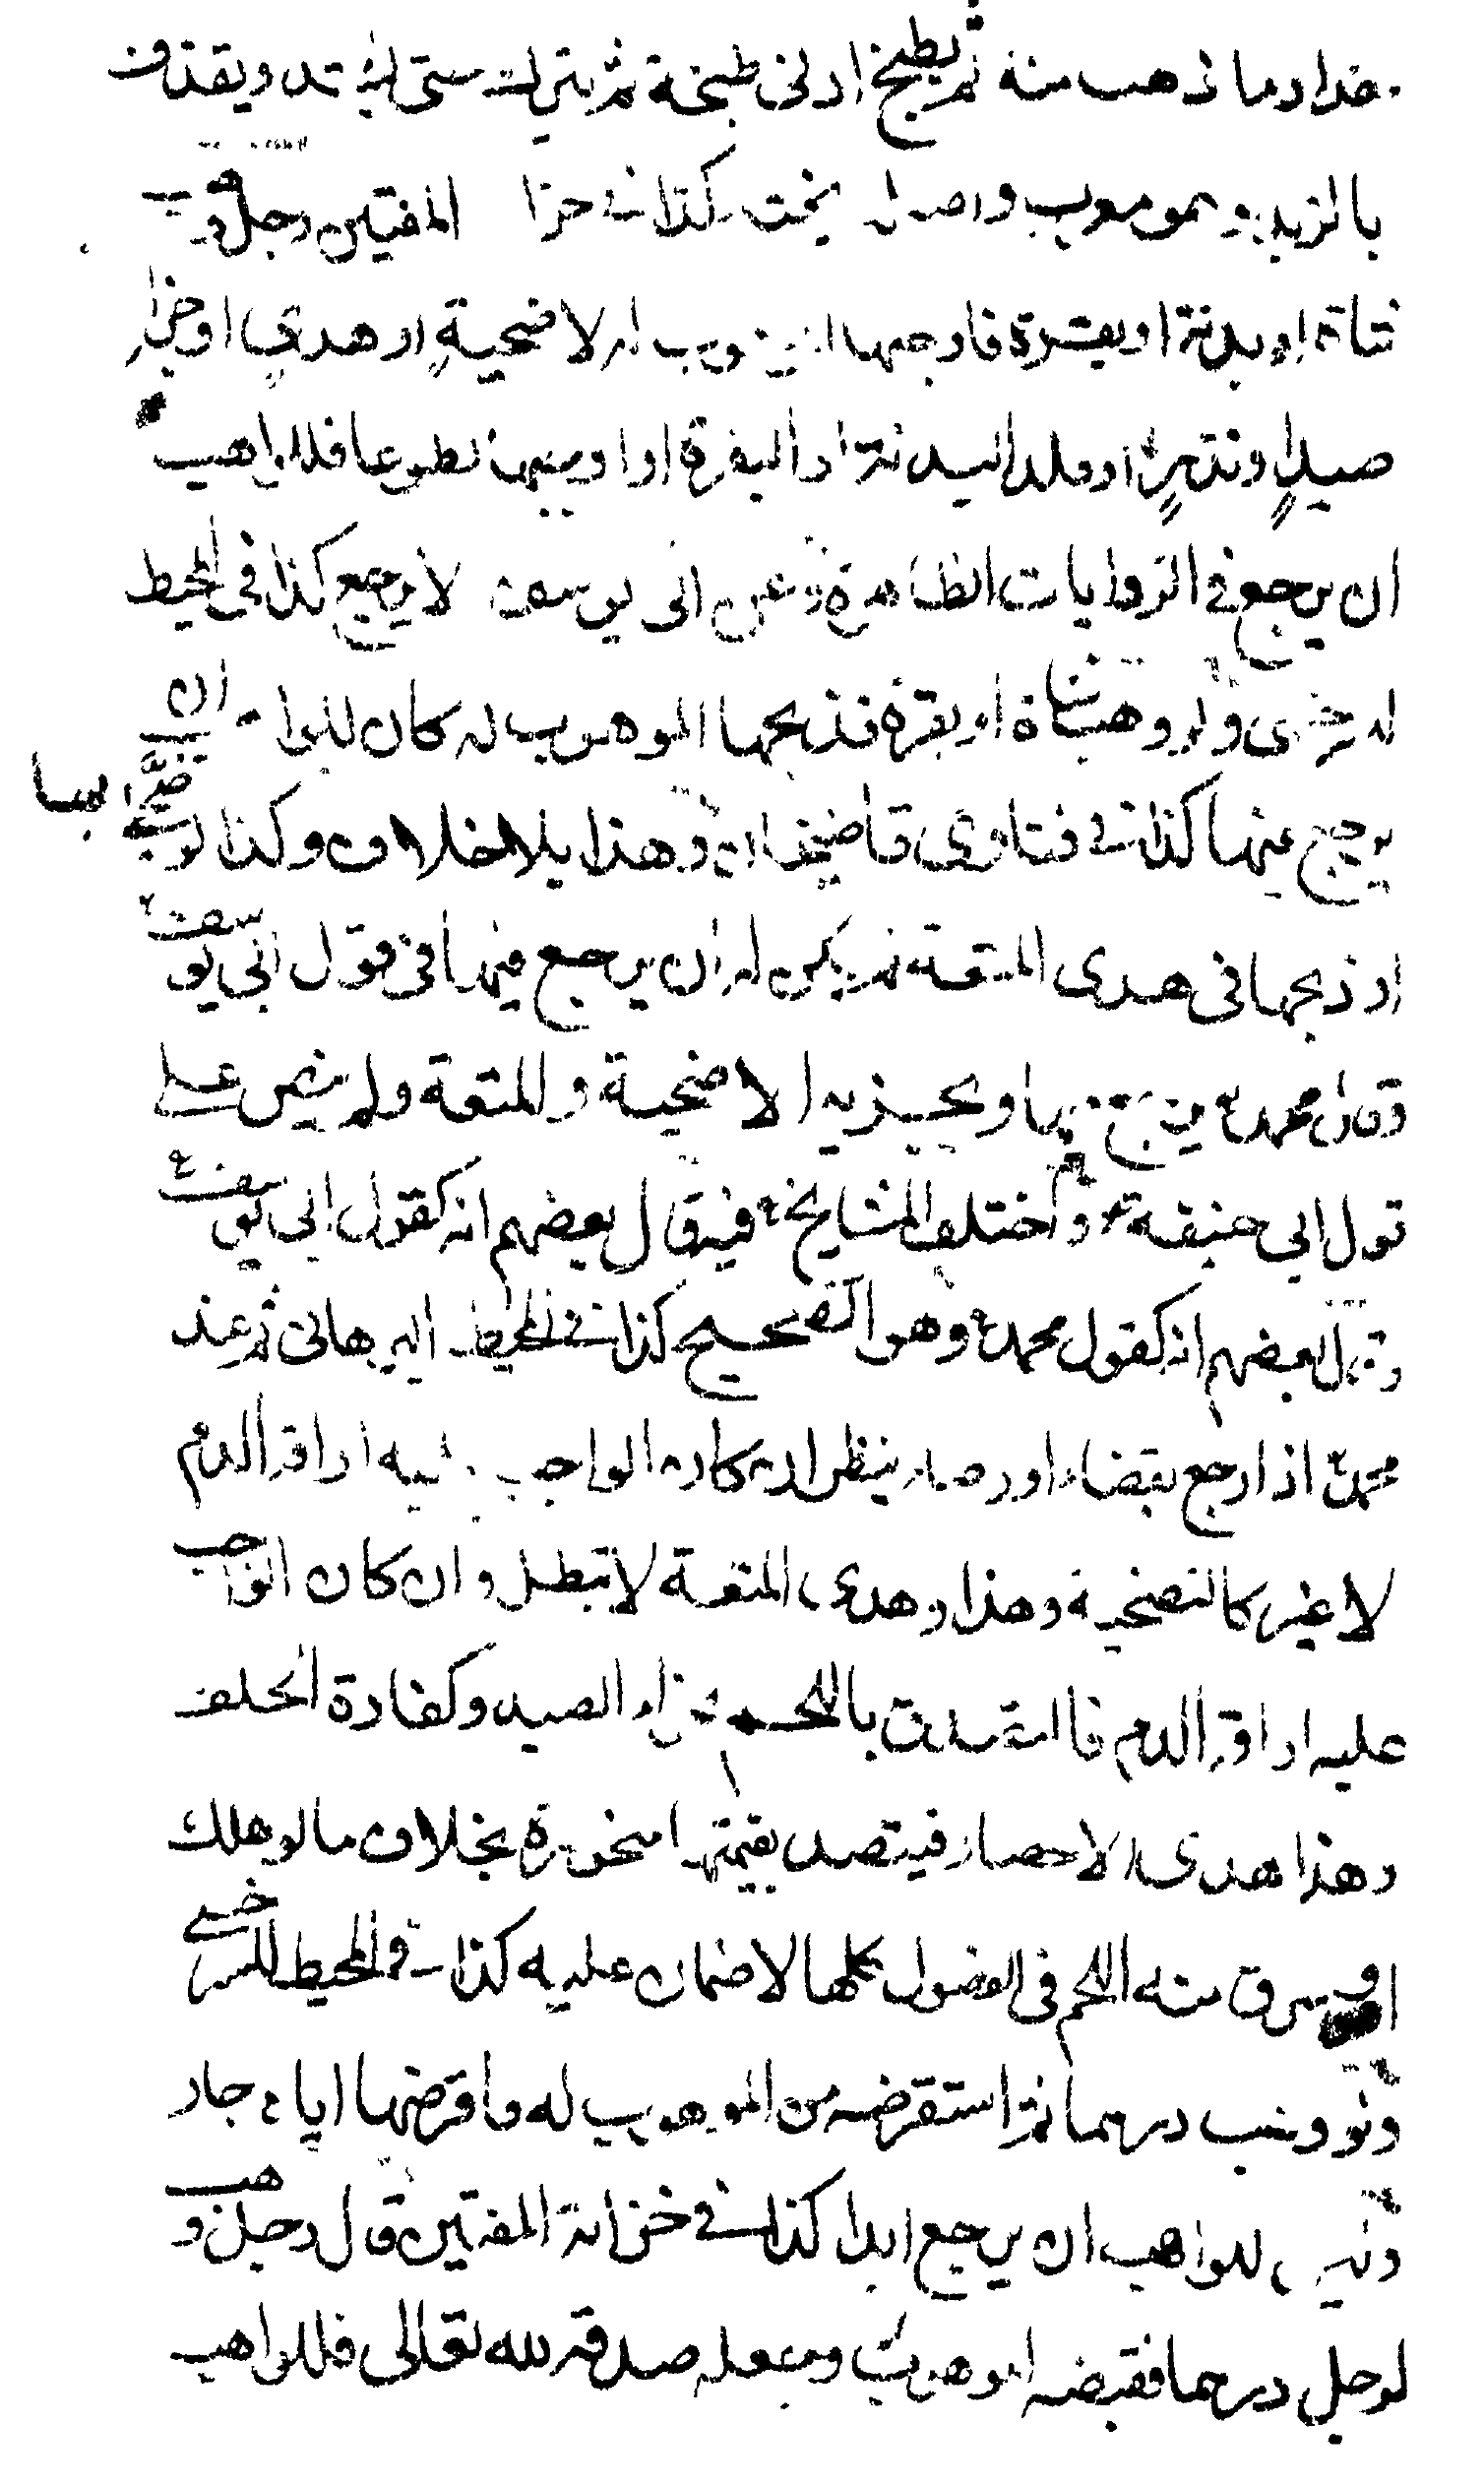 مقدار ما ذهب منه ثم يطبخ ادنى طبخة ثم يترك حتى يشتد ويقذف
بالزبد وهو معرب واصله پخت كذا في خزا المفتيين رجل وهب
شاة او بدنة او بقرة فاوجبها الموهوب له لاضحية او هدي او جزاء
صيد او نذر او قلد البدنة او البقرة او اوجبهما تطوعا فللواهب
ان يرجع في الروايات الظاهرة وعن ابى يوسف لا يرجع كذا في المحيط
للسرخسى ولو وهب شاة او بقرة فذبحها الموهوب له كان للواهب ان
يرجع فيها كذا في فتاوى قاضيخان وهذا بلا خلاف وكذا لو ضحى بها
او ذبحها في هدى المتعة لم يكن له ان يرجع فيها في قول ابى يوسف
وقال محمد يرجع فيها ويجزيه الاضحية والمتعة ولم ينص على
قول ابى حنيفة واختلف المشايخ فيه قال بعضهم انه كقول ابى يوسف
وقال بعضهم انه كقول محمد وهو الصحيح كذا في المحيط البرهانى ثم عند
محمد اذا رجع بقضاء او رضاء ينظر ان كان الواجب عليه اراقة الدم
لا غير كالتضحية وهذا وهدى المتعة لا تبطل وان كان الواجب
عليه اراقة الدم فالتصدق باللحم جزاء الصيد وكفارة الحلف
وهذا هدى الاحصار فيتصدق بقيمتها منحورة بخلاف ما لو هلك
او سرق منه اللحم في الفصول كلها لا ضمان عليه كذا في المحيط للسرخسى
ولو وهب درهما ثم استقرضه من الموهوب له فاقرضها اياه جاز
وليس للواهب ان يرجع ابدا كذا في خزانة المفتيين قال رجل وهب
لرجل درهما فقبضه الموهوب وجعله صدقة لله تعالى فللواهب